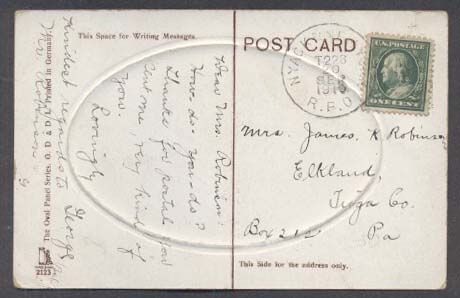 This Space for Writing Messages.
POST CARD
U.S. POSTAGE
ONE CENT
NYACK
T223
20
R.P.O.
Dear Mrs. Robinson:
How-do-you-do?
Thanks for postal. You
sent me very kind of
you.
Lovingly
Kindest regards to George
Mrs. James K Robinson
Elkland,
Tioga Co.
Box 212 Pa
The Oval Panel Series. O. D & D. L. Printed in Germany
2123
This Side for the address only.